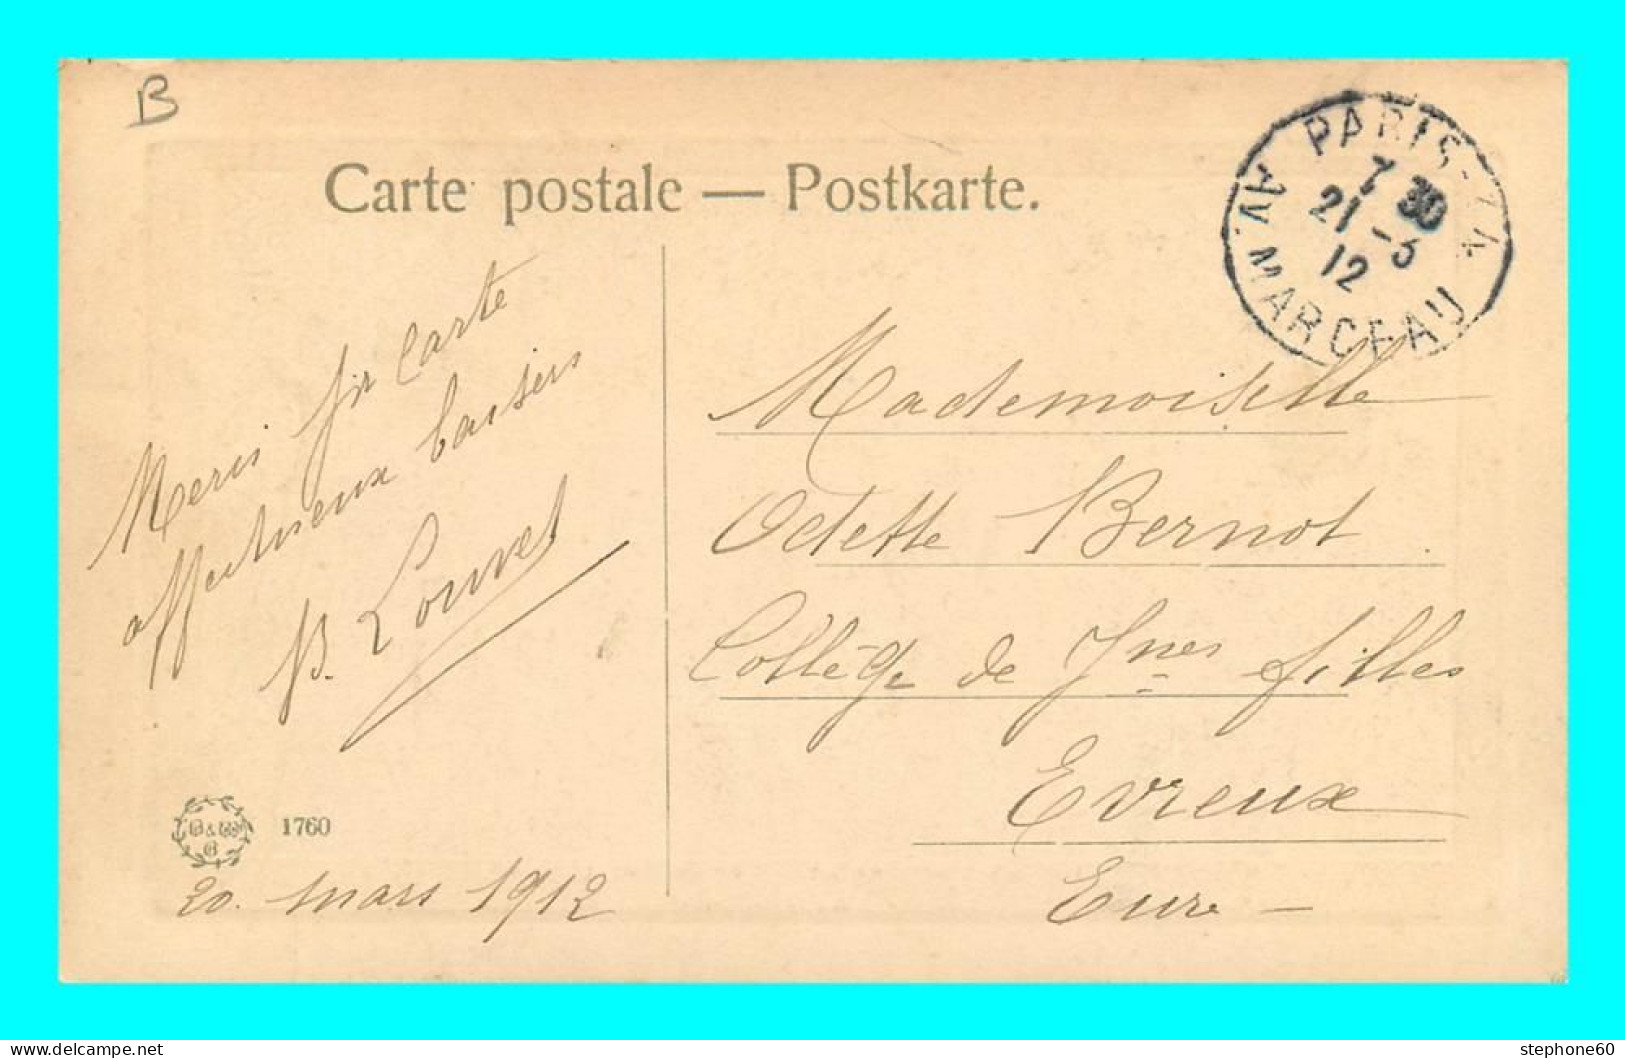 B
Carte postale — Postkarte.
PARIS-
7 30
21 -3
12
AV. MARCEAU
Merci pr Carte
affectueux baisers
B. Louvet
Mademoiselle
Odette Bernot
Collège de Jnes filles
Evreux
Eure —
1760
20. mars 1912
www.delcampe.net
stephone60